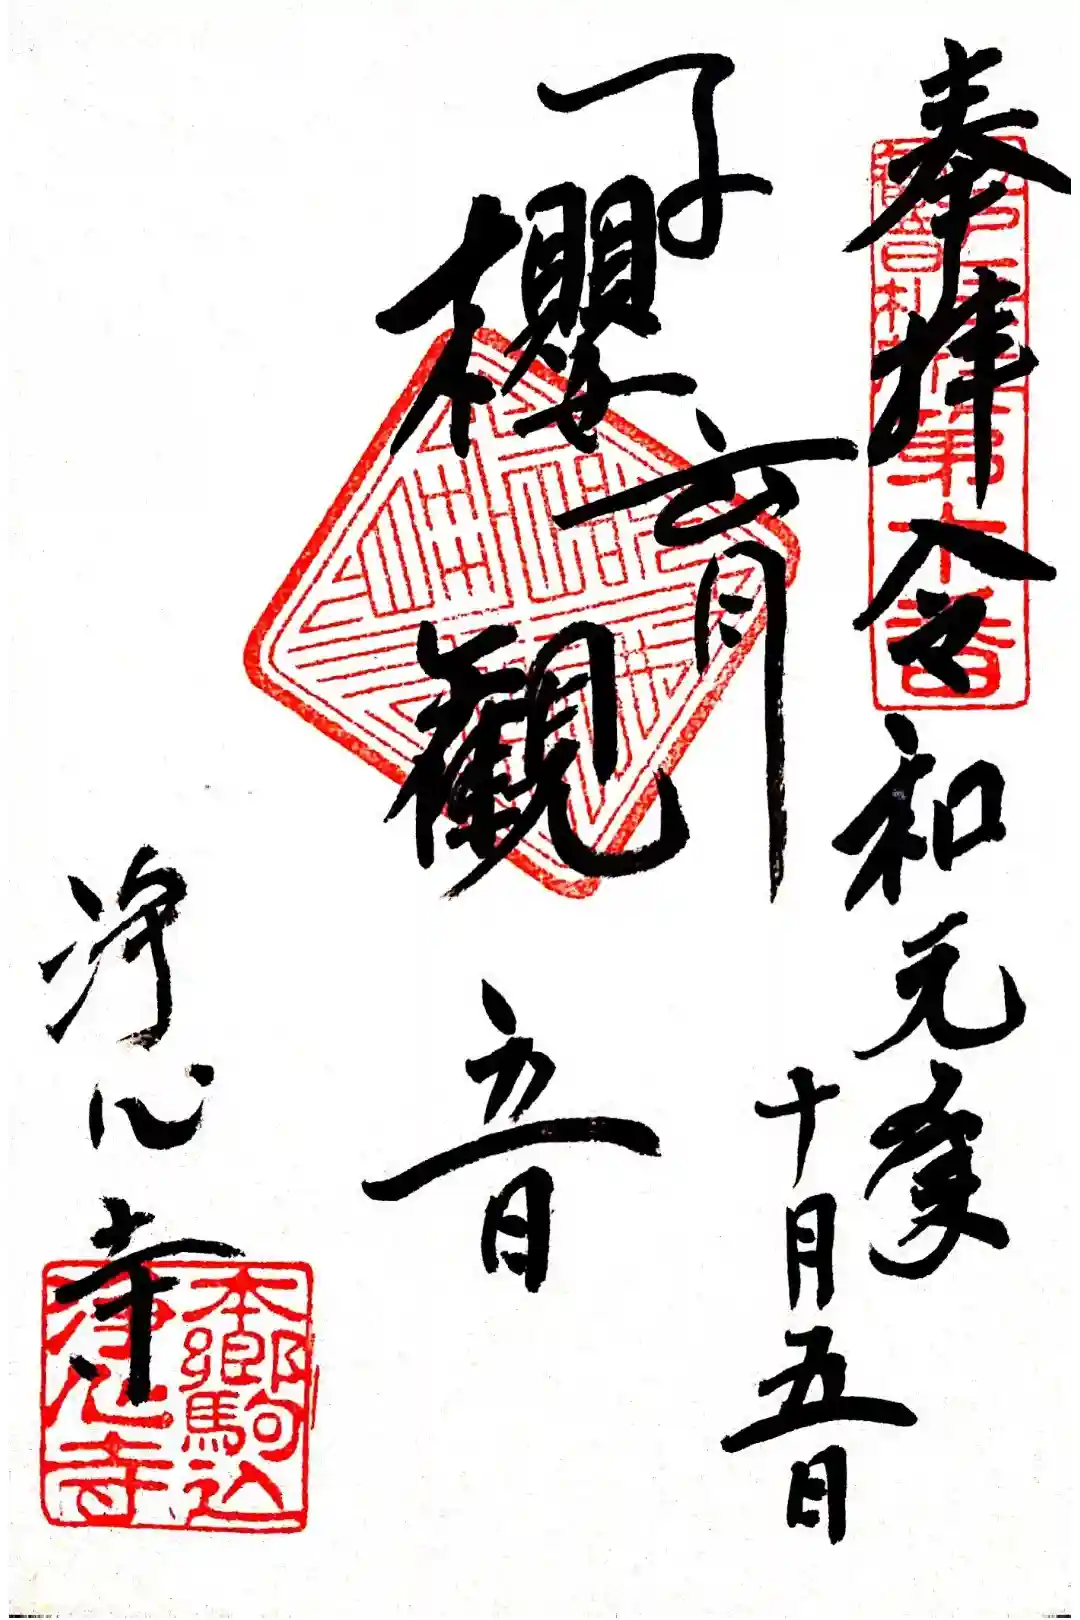 奉拝 令和元年
十月五日
子育
櫻観音
浄心寺
第十番
本郷駒込
浄心寺